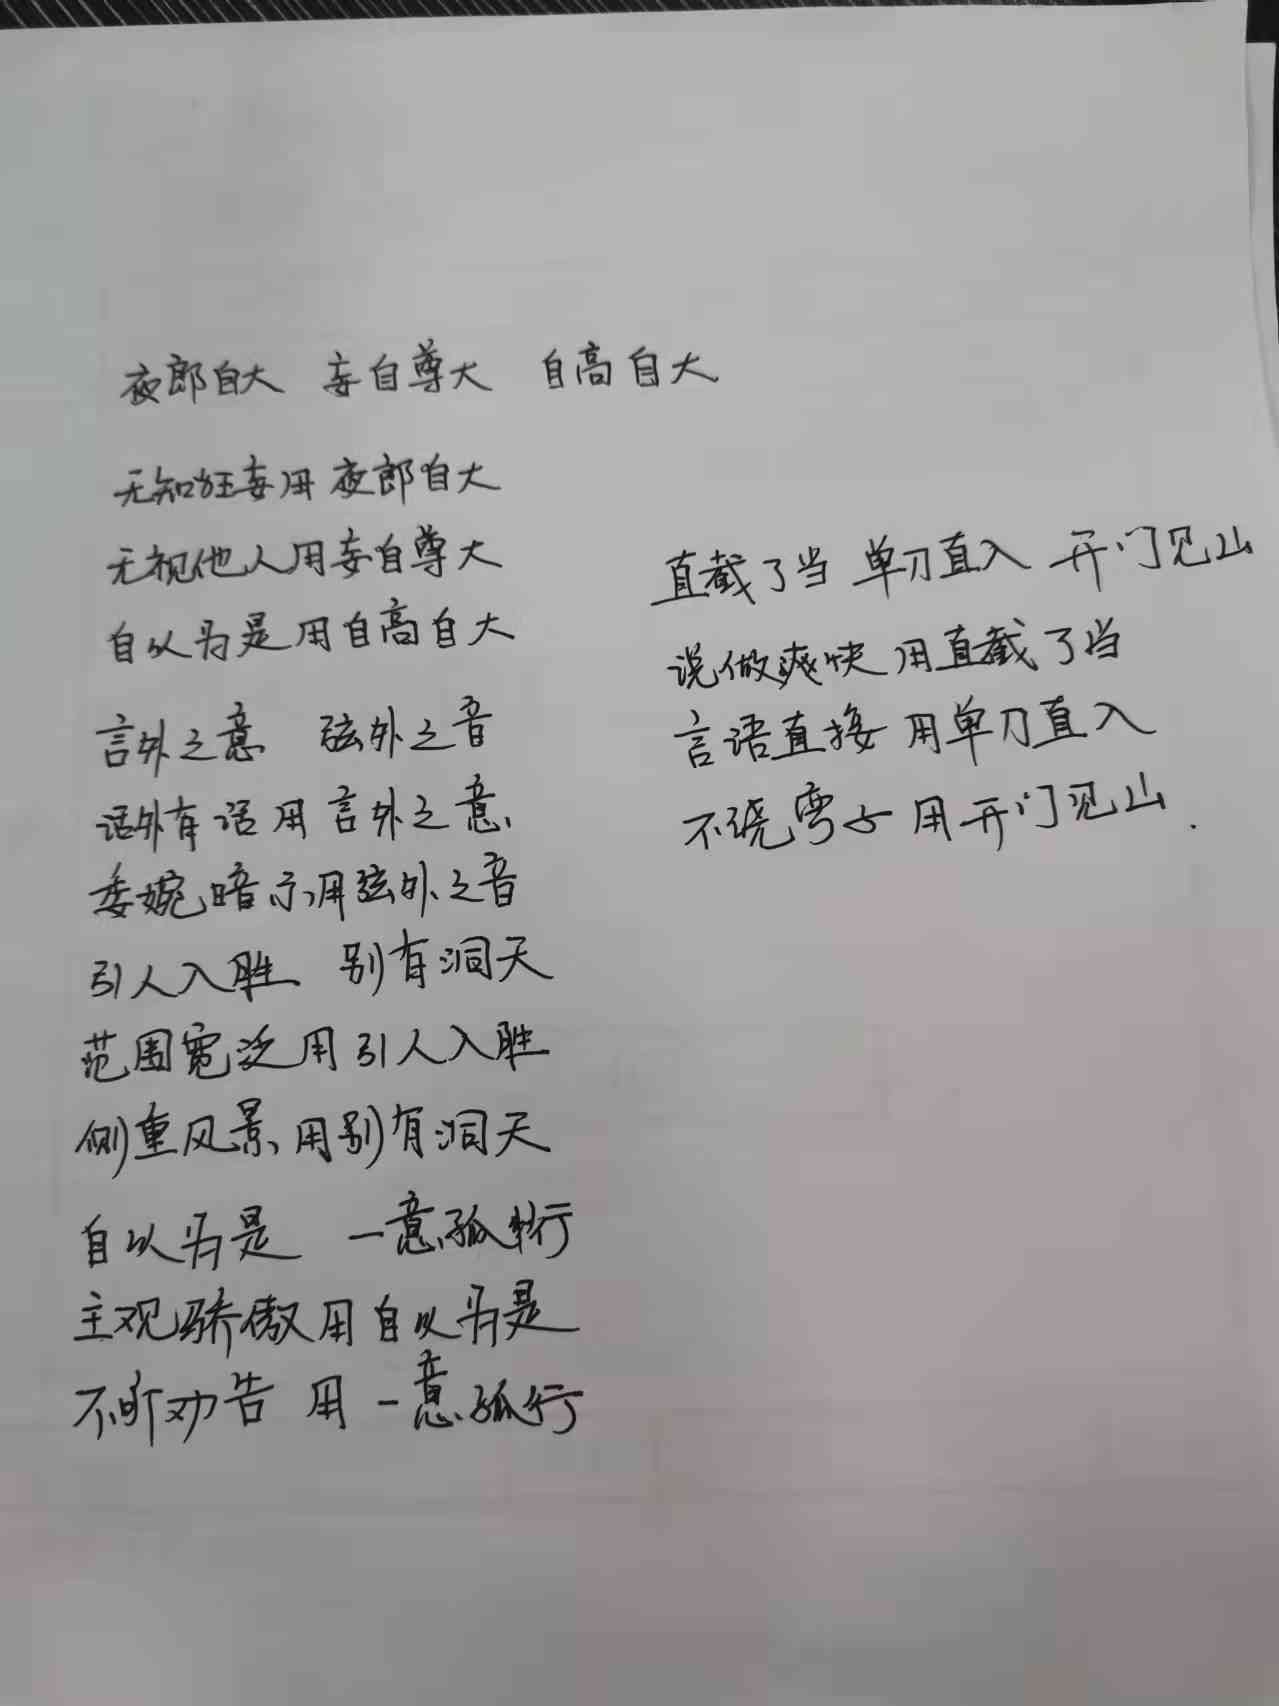 夜郎自大 妄自尊大 自高自大
无知狂妄用夜郎自大
无视他人用妄自尊大
自以为是用自高自大
言外之意 弦外之音
话外有话用言外之意
委婉暗示用弦外之音
引人入胜 别有洞天
范围宽泛用引人入胜
侧重风景用别有洞天
自以为是 一意孤行
主观骄傲用自以为是
不听劝告用一意孤行
直截了当 单刀直入 开门见山
说做爽快用直截了当
言语直接用单刀直入
不绕弯子用开门见山.